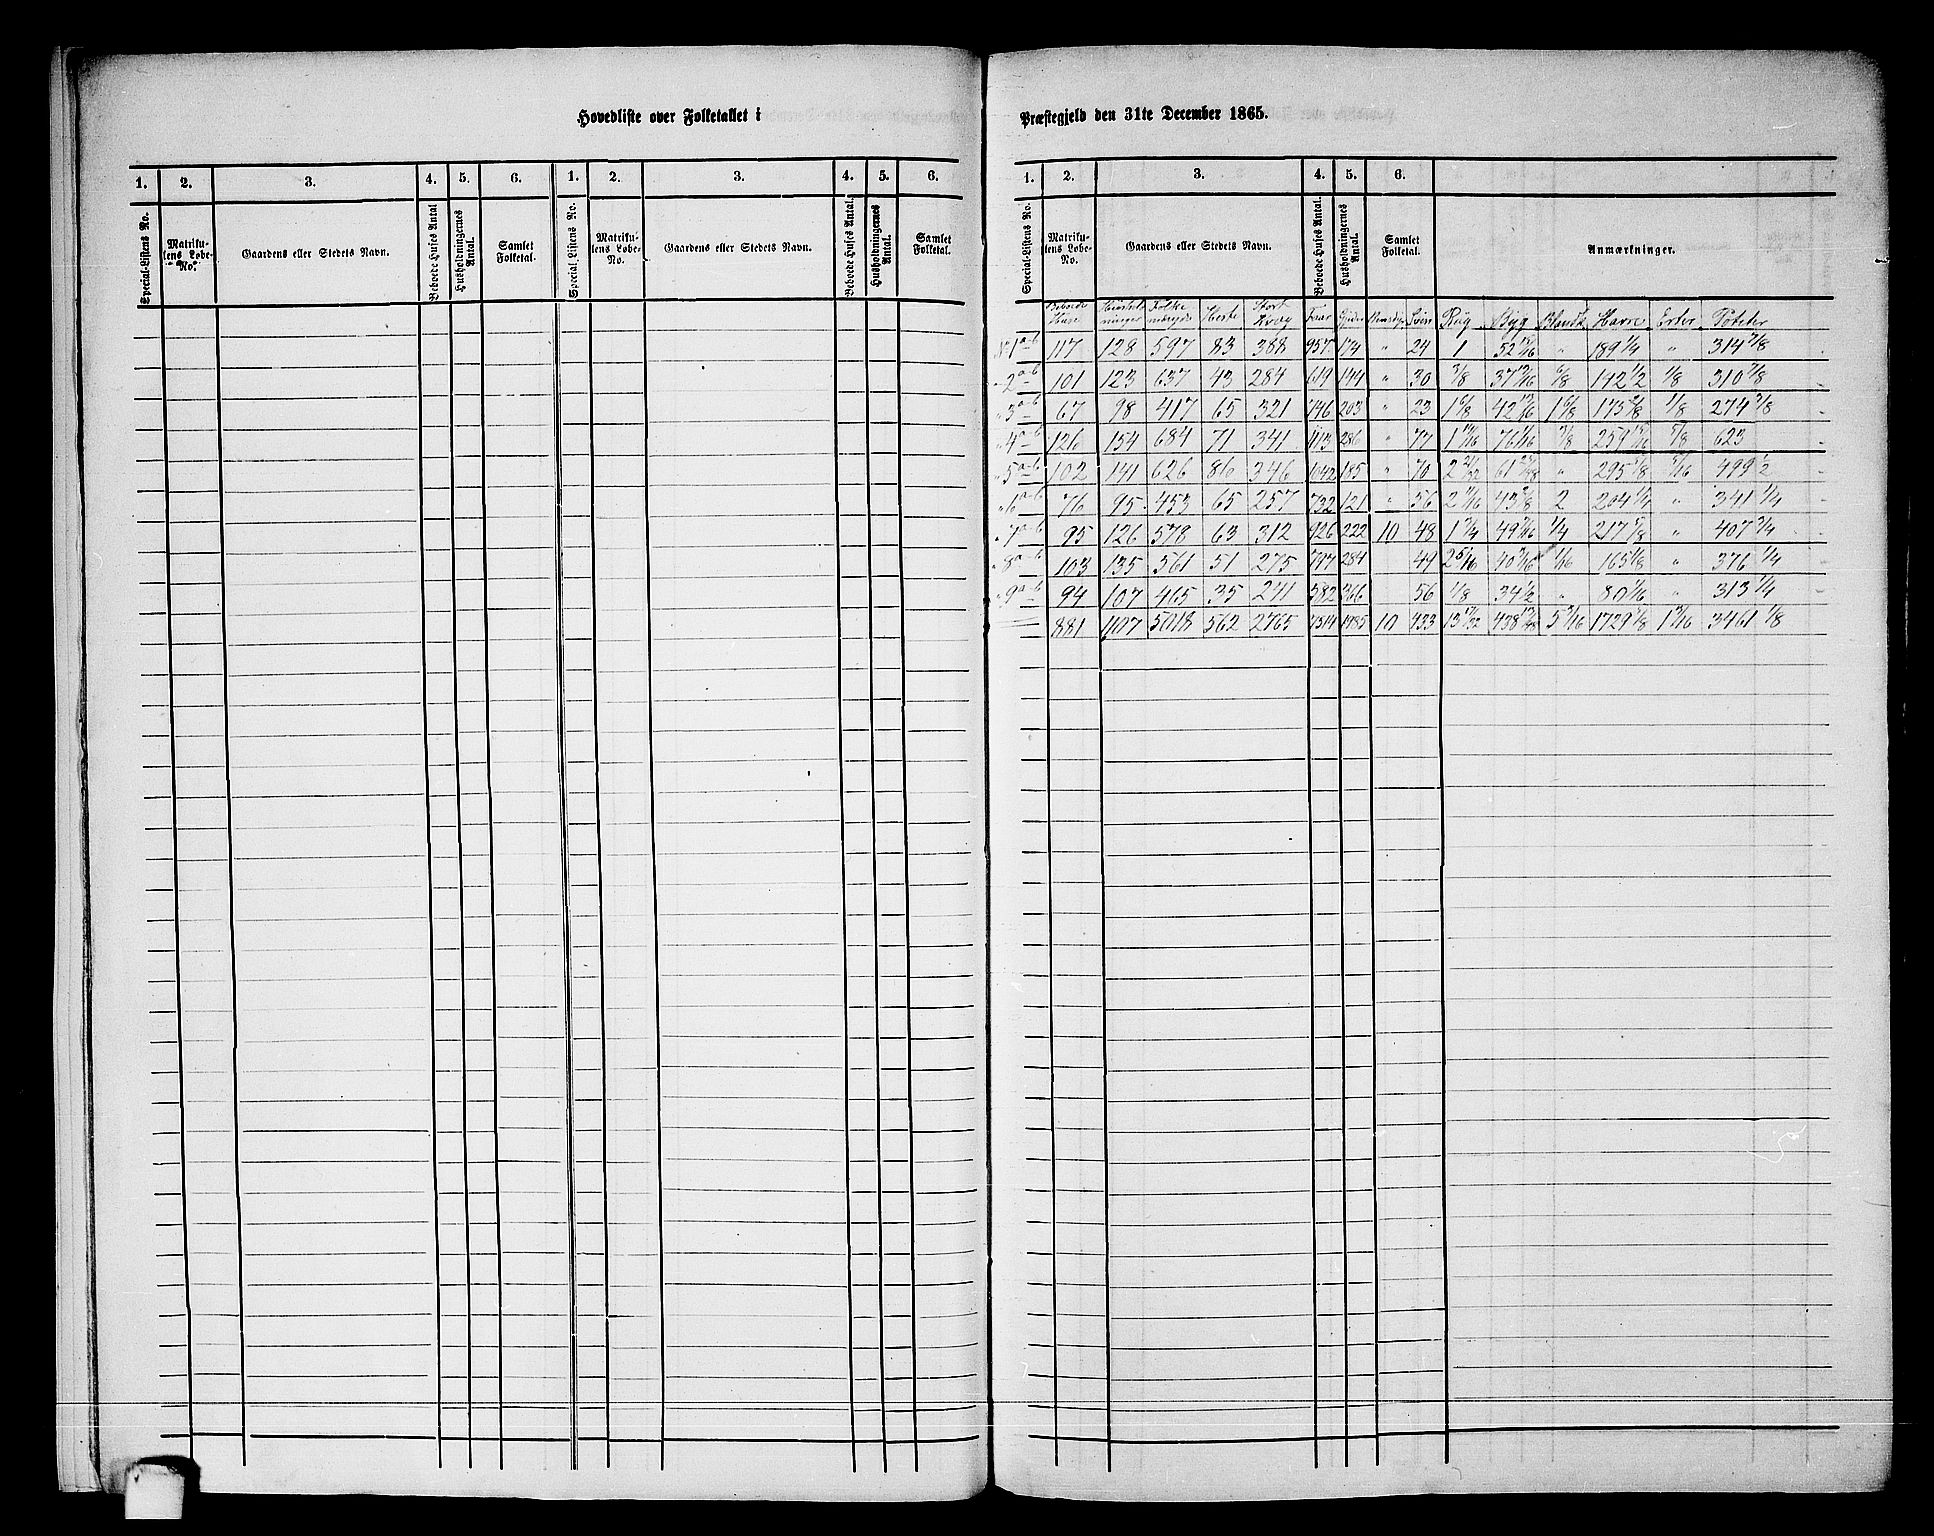 Hovedliste over Folketallet i
1. 2. 3. 4. 5. 6. 1. 2. 3. 4. 5. 6.
Special-Listens No. Matrikulens Løbe-No. Gaardens eller Stedets Navn. Beboede Huses Antal Husholdningernes Antal. Samlet Folketal. Special Listens No. Matrikulens Løbe-No. Gaardens eller Stedets Navn. Beboede Huses Antal. Husholdningernes Antal. Samlet Folketal.
Præstegjeld den 31te December 1865.
1. 2. 3. 4. 5. 6.
Special-Listens No. Matrikulens Løbe-No. Gaardens eller Stedets Navn. Beboede Huses Antal. Husholdningernes Antal. Samlet Folketal. Anmærkninger.
Beboede Huse Folke Heste Stort Kvæg Faar Gjeder Rensdyr Sviin Rug Byg Blandk Havre Erter Poteter
No 1 a-b 117 128 597 83 388 957 174 " 24 1 52 " 189 1/4 " 314 7/8
" 2 a-b 101 123 637 43 284 619 144 " 30 3/8 37 13/16 6/8 142 1/2 1/8 310 7/8
" 3 a-b 67 98 417 65 321 746 203 " 23 1 6/8 42 13/16 1 6/8 173 1/8 274 3/8
" 4 a-b 126 154 684 71 341 1113 286 " 77 1 76 1/16 259 5/8 623
" 5 a-b 102 141 626 86 346 1042 185 " 70 2 61 " 295 499 1/2
" 6 a-b 76 95 453 65 257 732 121 " 56 2 43 2 204 1/4 " 341 1/4
" 7 a-b 95 126 578 63 312 926 222 10 48 1 49 1/4 217 " 407 3/4
" 8 a-b 103 135 561 51 275 797 284 49 2 5/16 40 1/16 165 1/8 " 376 1/4
" 9 a-b 94 107 465 35 241 582 366 56 1/8 34 1/2 " 80 1/16 " 313 1/4
881 1107 5018 562 2765 7514 1985 10 433 13 17/32 438 5 3/16 1729 1/8 1 3461 1/8